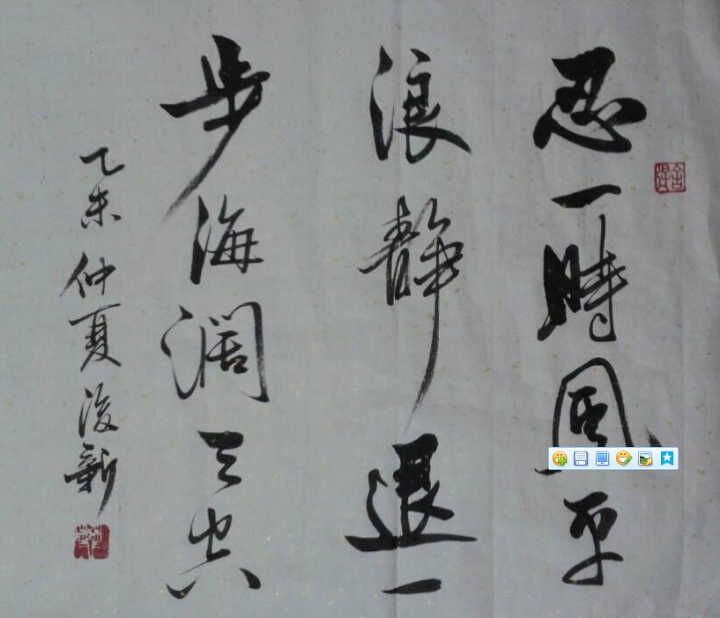 忍一時風平
浪静退一
步海濶天空
乙未仲夏浚新